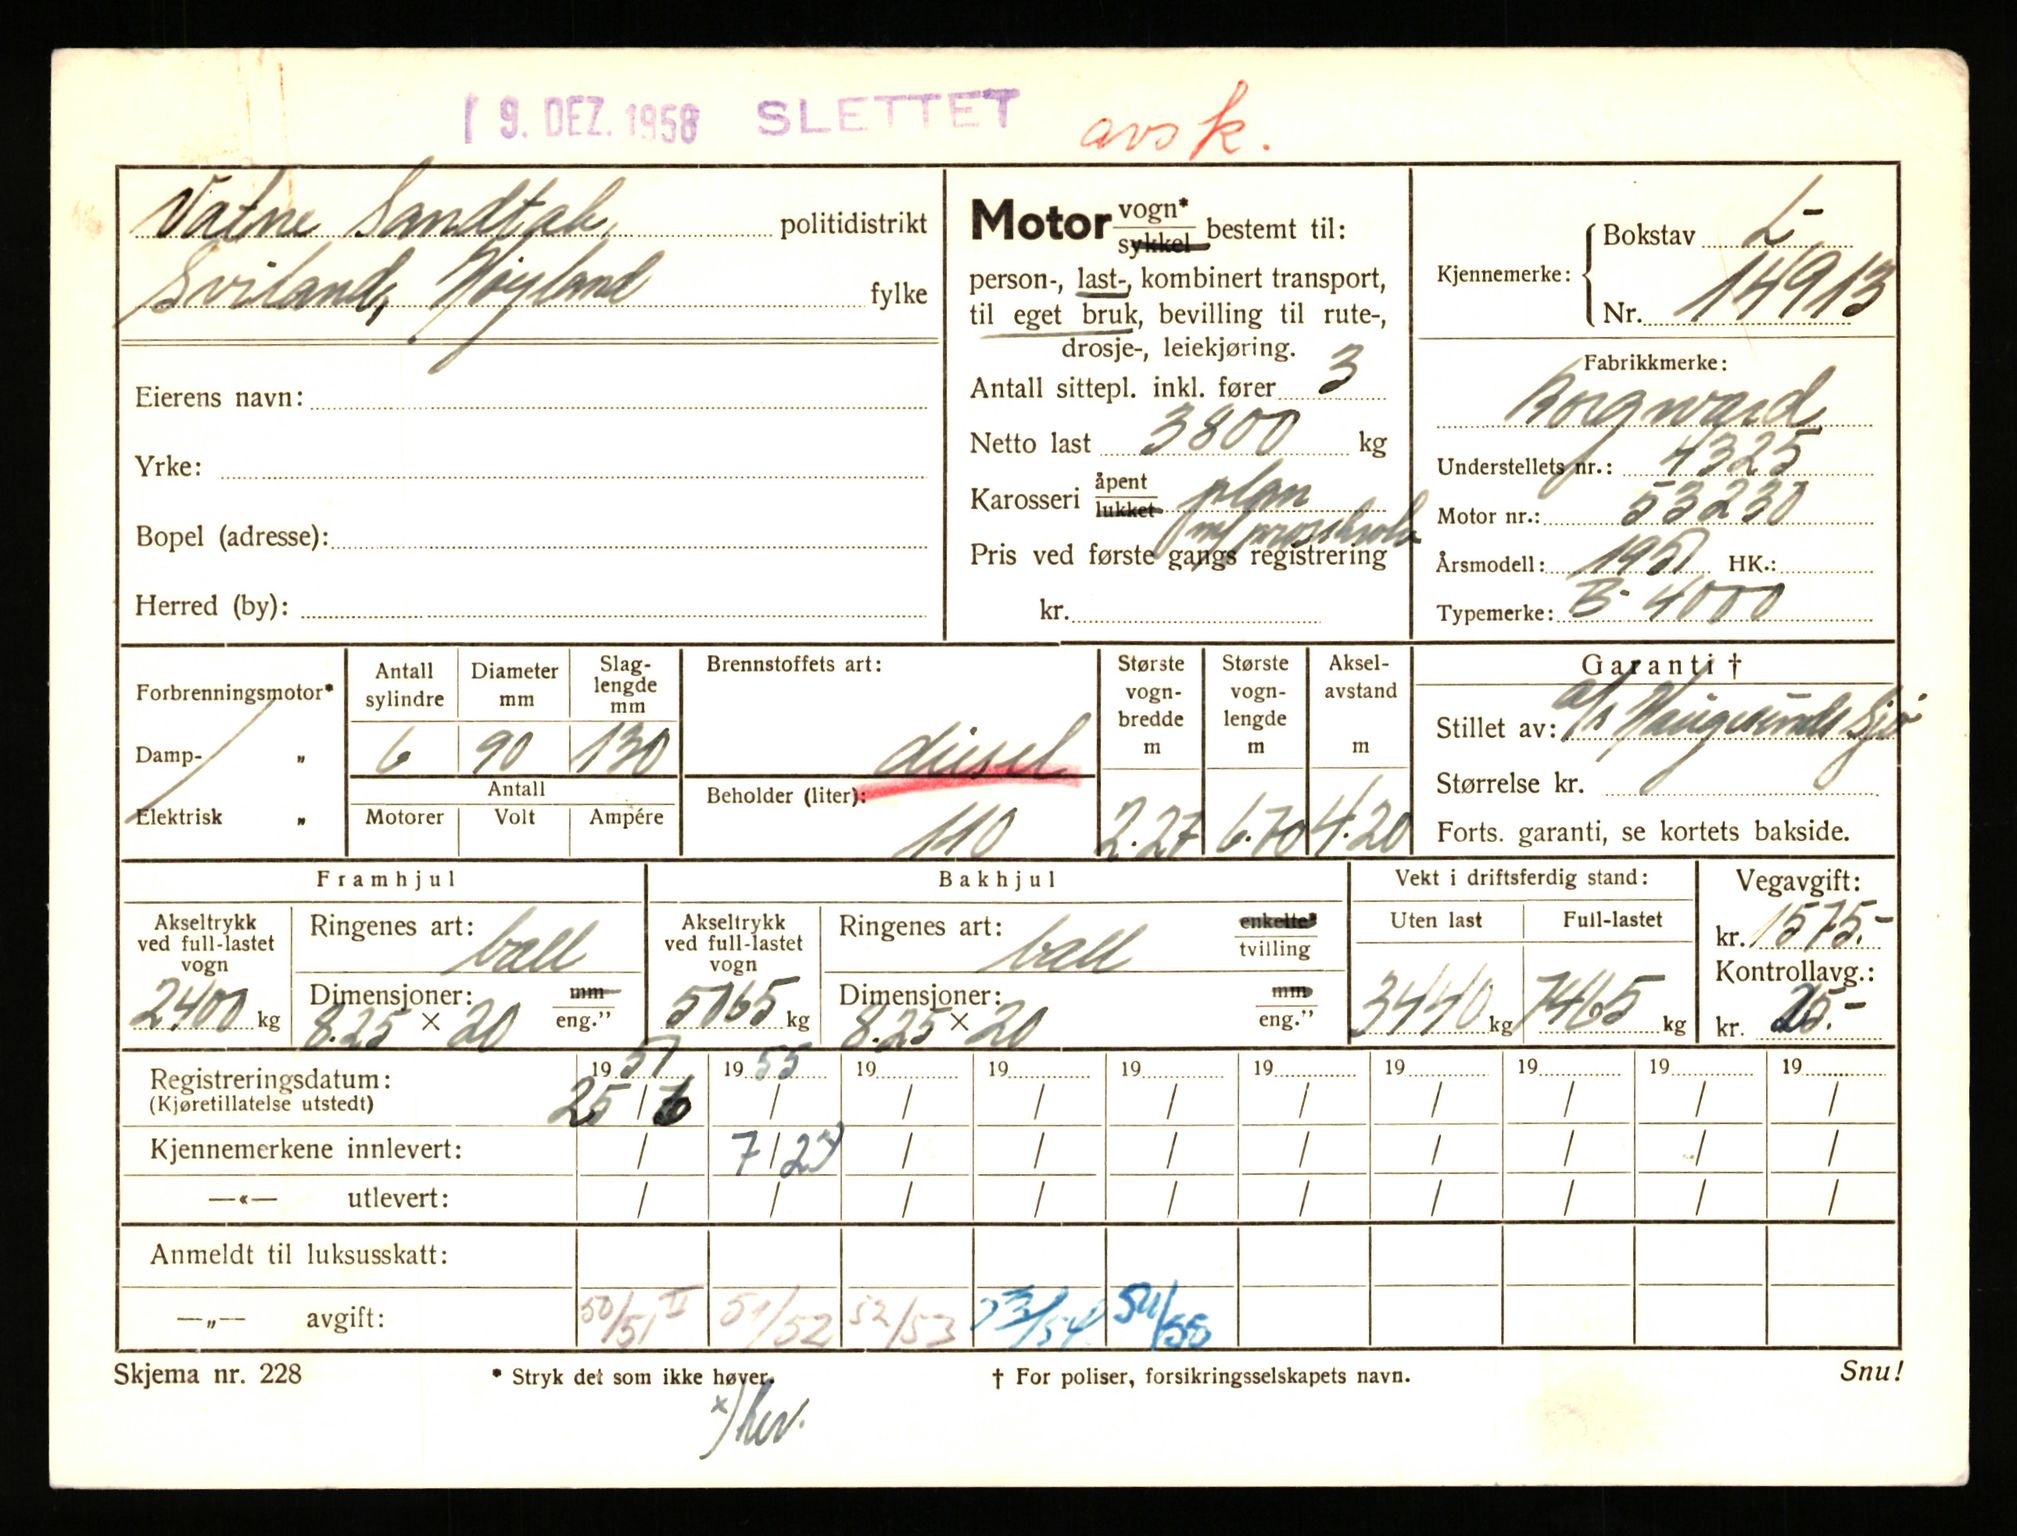 19. DEZ. 1958 SLETTET avsk.
Vatne Sandtak politidistrikt
Sviland, Høyland fylke
Eierens navn:
Yrke:
Bopel (adresse):
Herred (by):
Motor vogn* sykkel bestemt til:
person-, last-, kombinert transport,
til eget bruk, bevilling til rute-,
drosje-, leiekjøring.
Antall sittepl. inkl. fører 3
Netto last 3800 kg
Karosseri åpent lukket plan
m/
Pris ved første gangs registrering
kr.
Kjennemerke: Bokstav L-
Nr. 14913
Fabrikkmerke:
Borgward
Understellets nr.: 4325
Motor nr.: 53230
Årsmodell: 1951 HK.:
Typemerke: B-4000
Forbrenningsmotor*
Damp- „
Elektrisk „
Antall sylindre Diameter mm Slag-lengde mm
6 90 130
Antall
Motorer Volt Ampére
Brennstoffets art:
diesel
Beholder (liter):
110
Største vogn-bredde m Største vogn-lengde m Aksel-avstand m
2.27 6.70 4.20
Garanti †
Stillet av: a/s Haugesunds Sjø
Størrelse kr.
Forts. garanti, se kortets bakside.
Framhjul
Akseltrykk ved full-lastet vogn
2400 kg
Ringenes art: ball
Dimensjoner: mm
8.25 × 20 eng.”
Bakhjul
Akseltrykk ved full-lastet vogn
5065 kg
Ringenes art: ball enkelte* tvilling
Dimensjoner: mm
8.25 × 20 eng.”
Vekt i driftsferdig stand:
Uten last Full-lastet
3440 kg 7465 kg
Vegavgift:
kr. 1575.-
Kontrollavg.:
kr. 25.-
1951 1955 19 19 19 19 19 19 19 19
Registreringsdatum: 25/6 / / / / / / / / /
(Kjøretillatelse utstedt)
Kjennemerkene innlevert: / 7/27 / / / / / / / /
—«— utlevert: / / / / / / / / / /
Anmeldt til luksusskatt:
—„— avgift: 50/51 II 51/52 52/53 53/54 54/55
Skjema nr. 228 * Stryk det som ikke høver. † For poliser, forsikringsselskapets navn. Snu!
x)